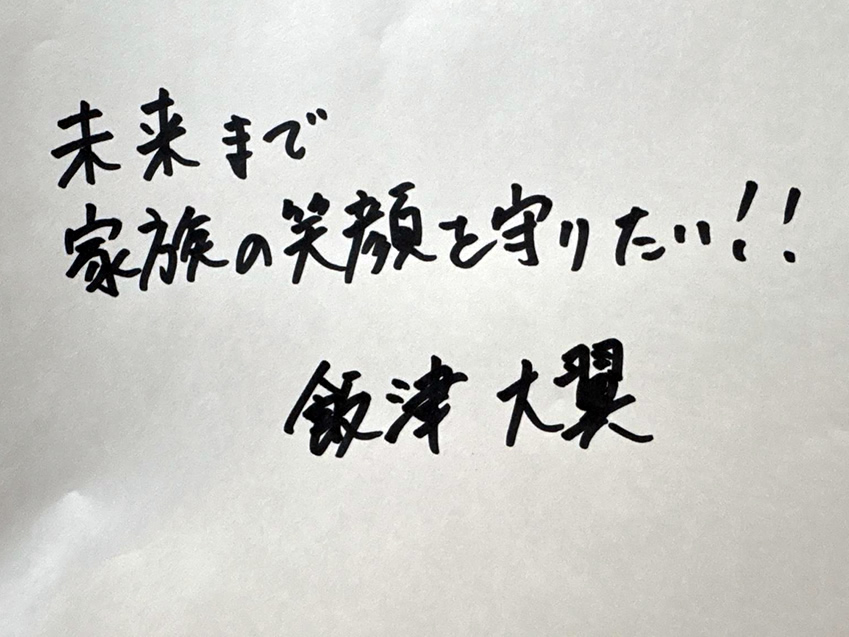 未来まで
家族の笑顔を守りたい!!
飯津 大翼